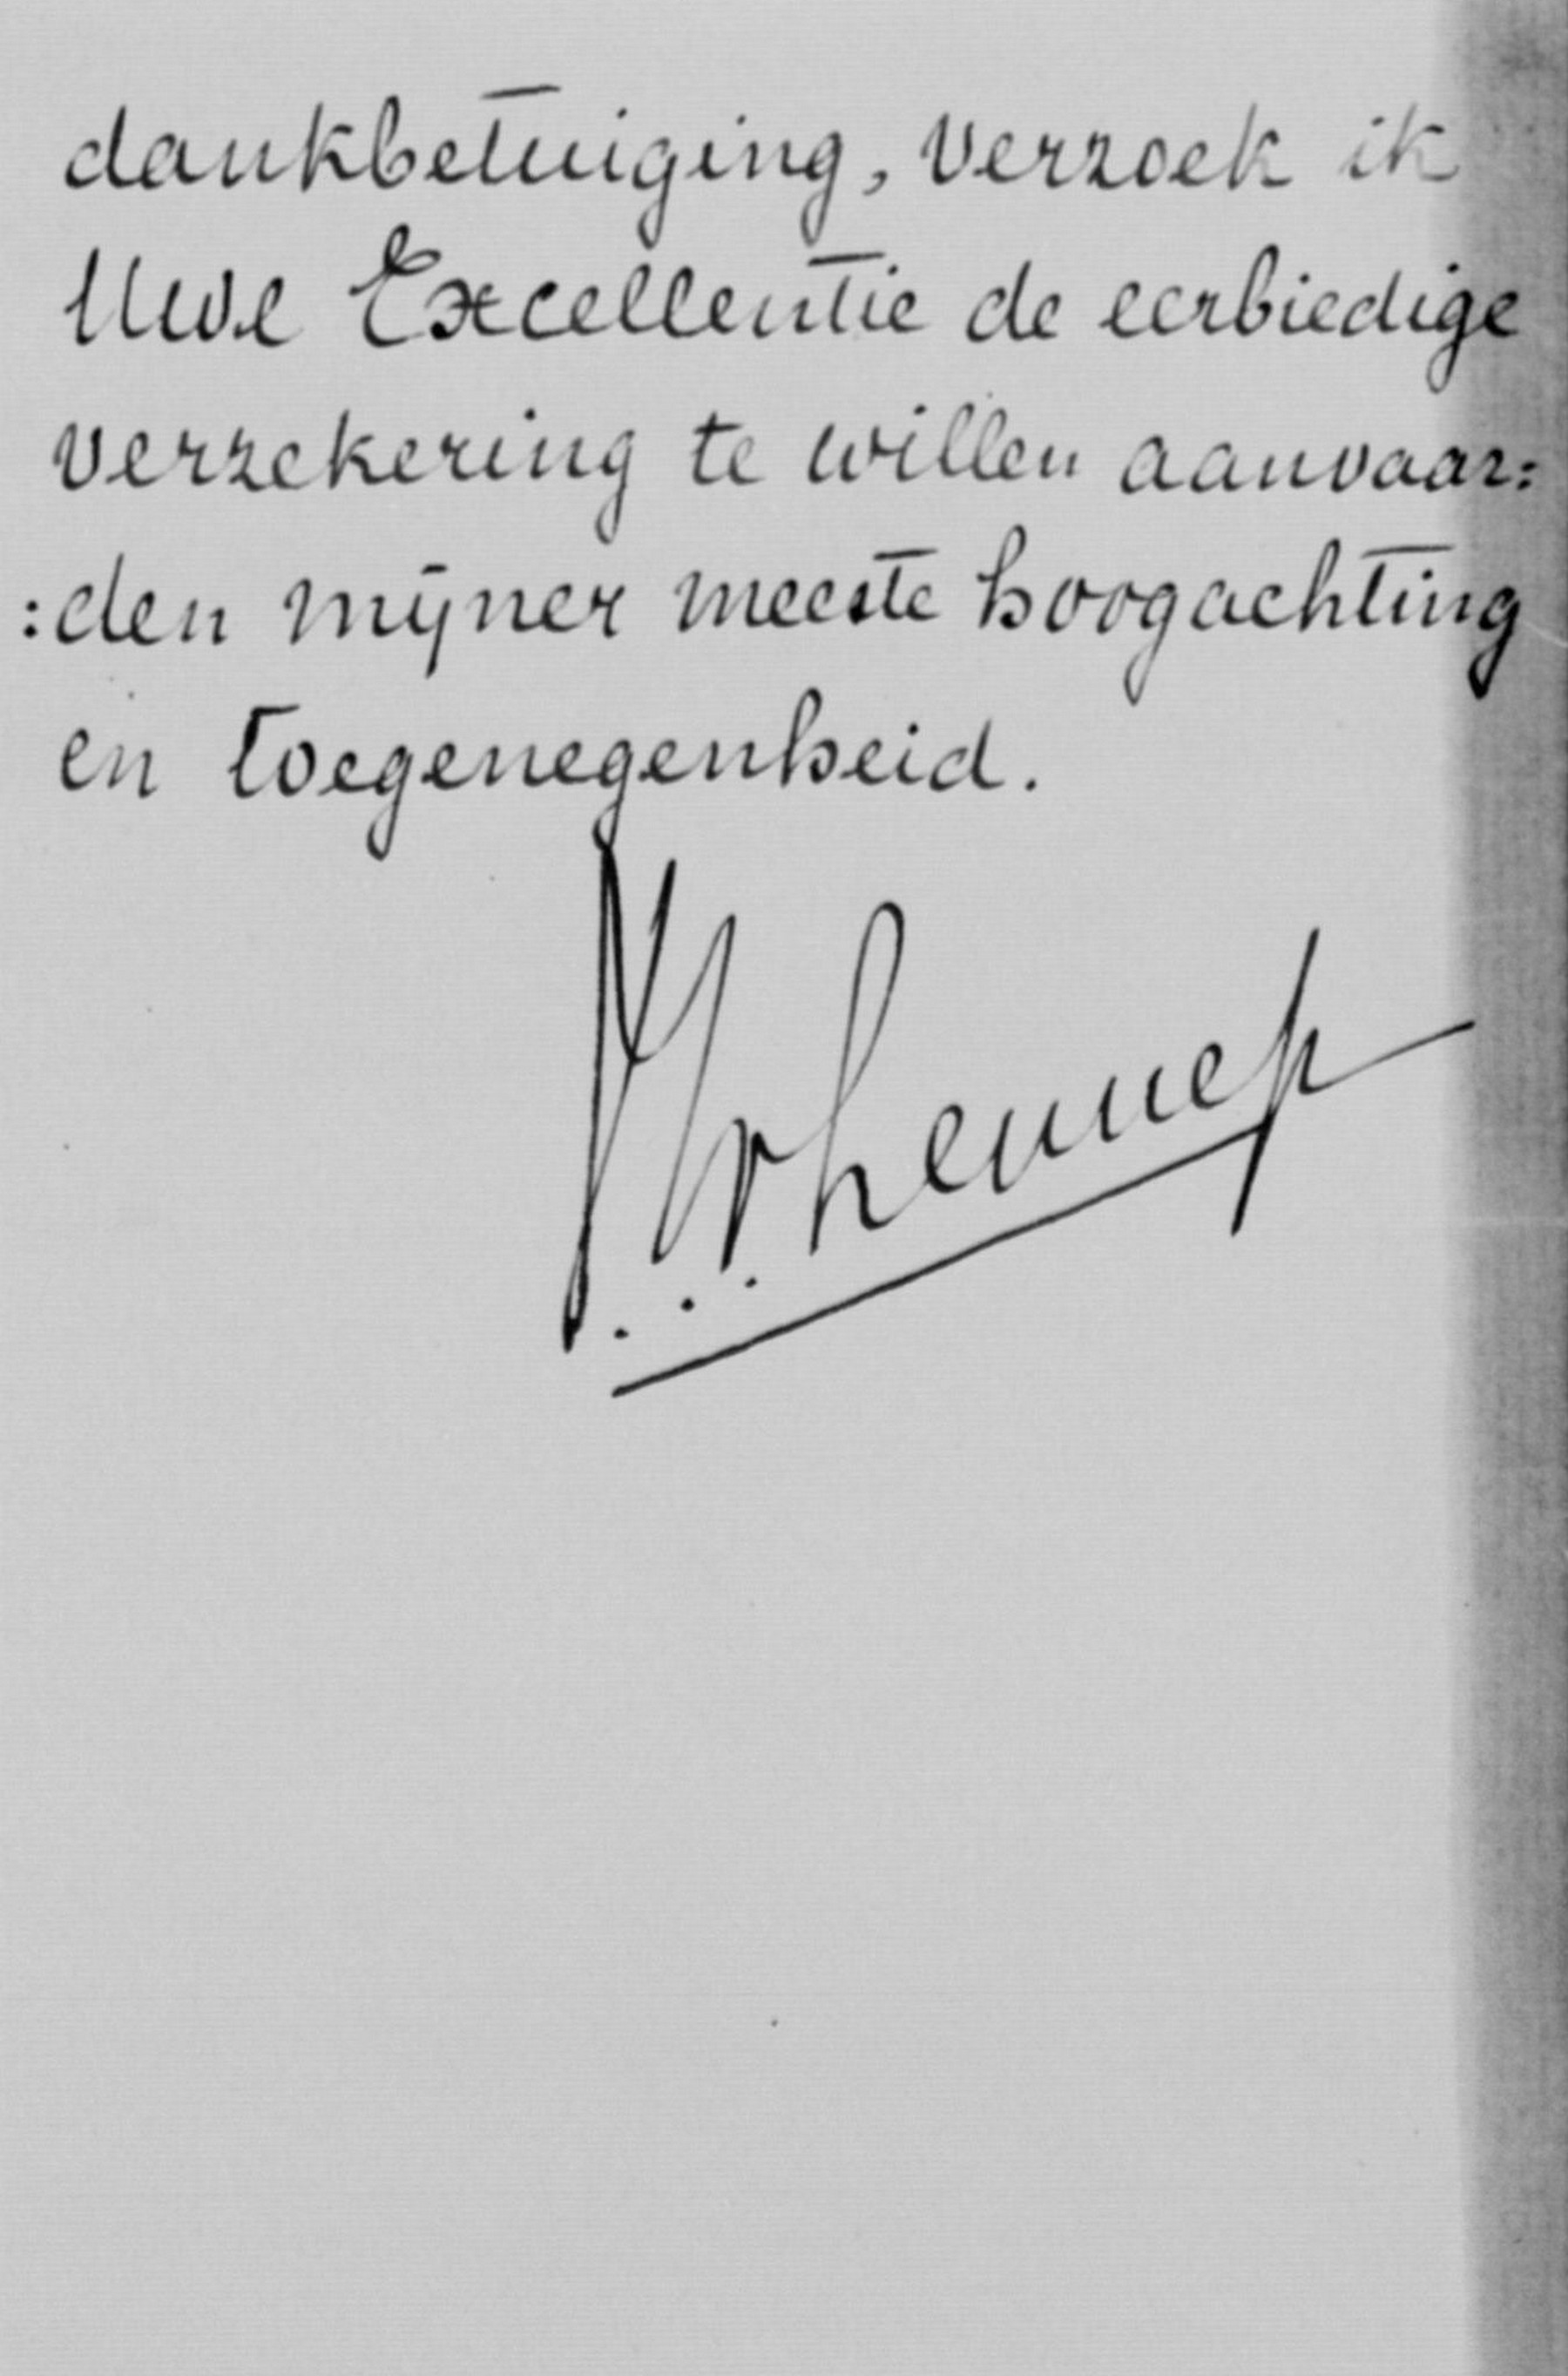 dankbetuiging, verzoek ik
Uwe Excellentie de eerbiedige
verzekering te willen aanvaar:
:den mijner meeste hoogachting
en toegenegenheid.
v. Lennep